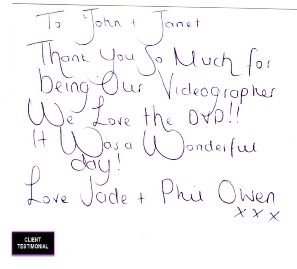 To John + Janet
Thank You So Much for
being Our Videographer
We Love the DVD!!
It Was a Wonderful
day!
Love Jade + Phil Owen
x x x
CLIENT
TESTIMONIAL